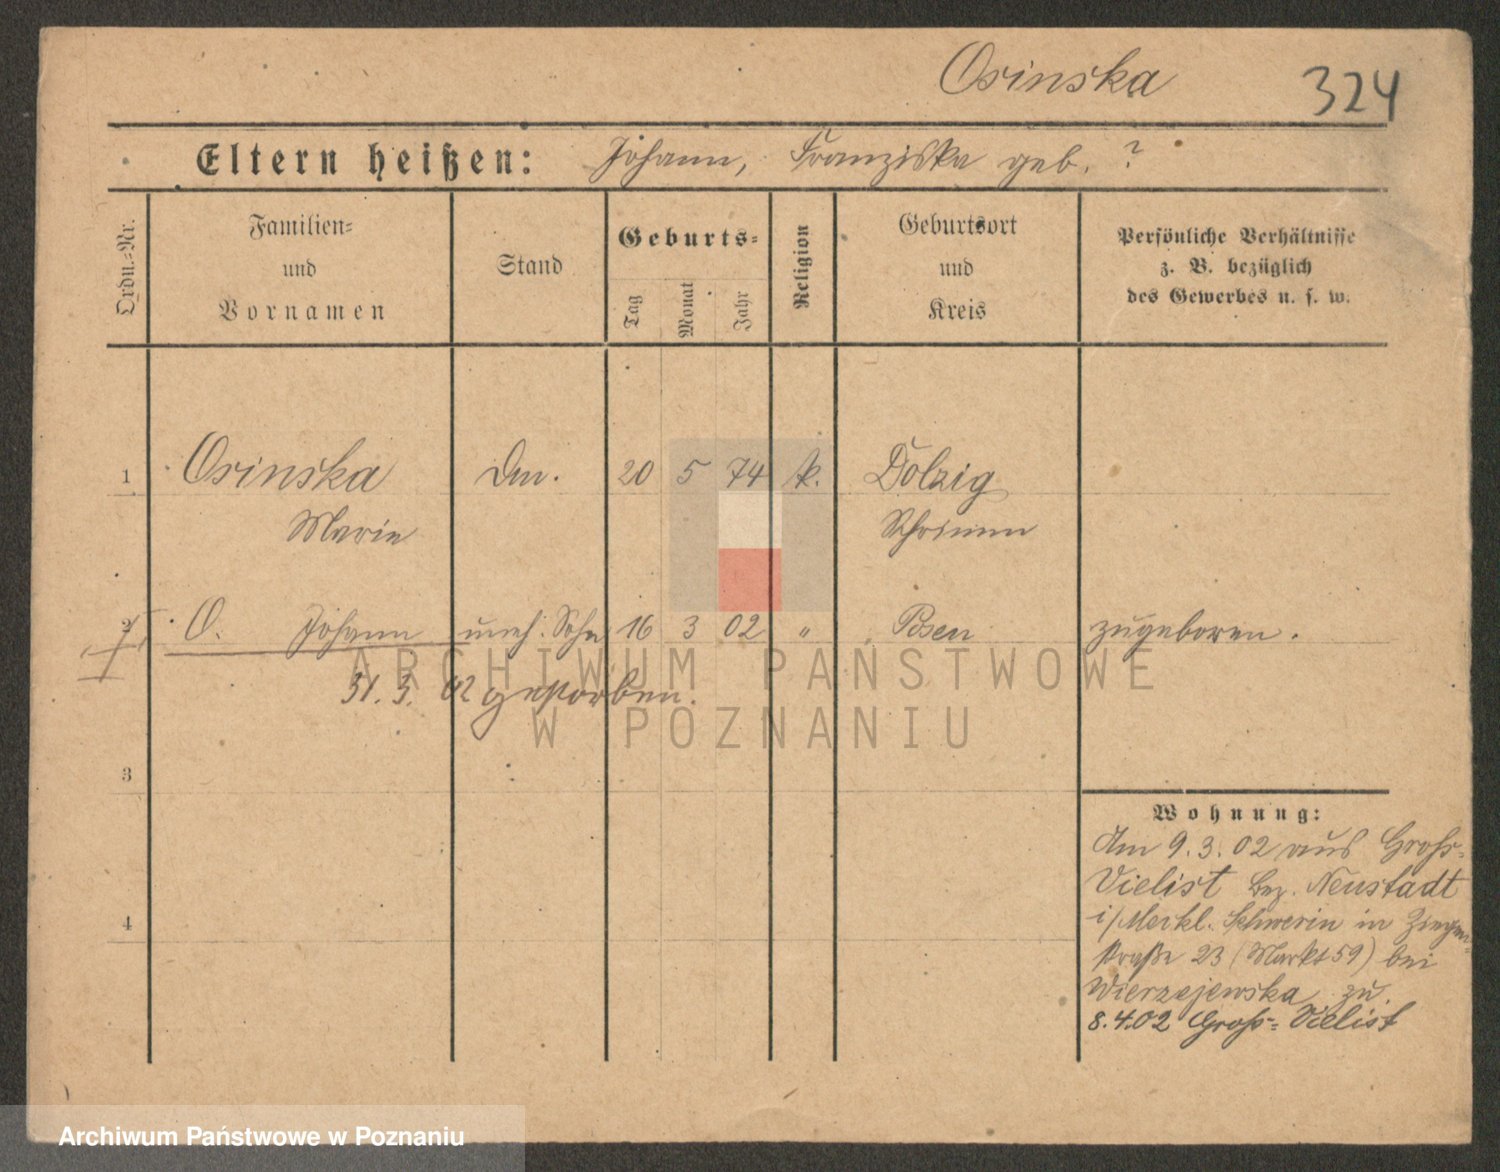 Osinska 324
Eltern heißen: Johann, Franziska geb. ?
Ordn.=Nr.
Familien=
und
Vornamen
Stand
Geburts=
Tag
Monat
Jahr
Religion
Geburtsort
und
Kreis
Persönliche Verhältnisse
z. B. bezüglich
des Gewerbes u. s. w.
1 Osinska 20 5 74 k. Dolzig
Marie Schrimm
2 O. Johann uneh. Sohn 16 3 02 " Posen zugeboren.
31. 3. 02 gestorben.
3
4
Wohnung:
Am 9. 3. 02 aus Groß=
Vielist Bez. Neustadt
i/Meckl. Schwerin in Ziegen=
straße 23 (Markt 59) bei
Wierzejewska zu.
8. 4. 02 Groß= Vielist
ARCHIWUM PAŃSTWOWE
W POZNANIU
Archiwum Państwowe w Poznaniu